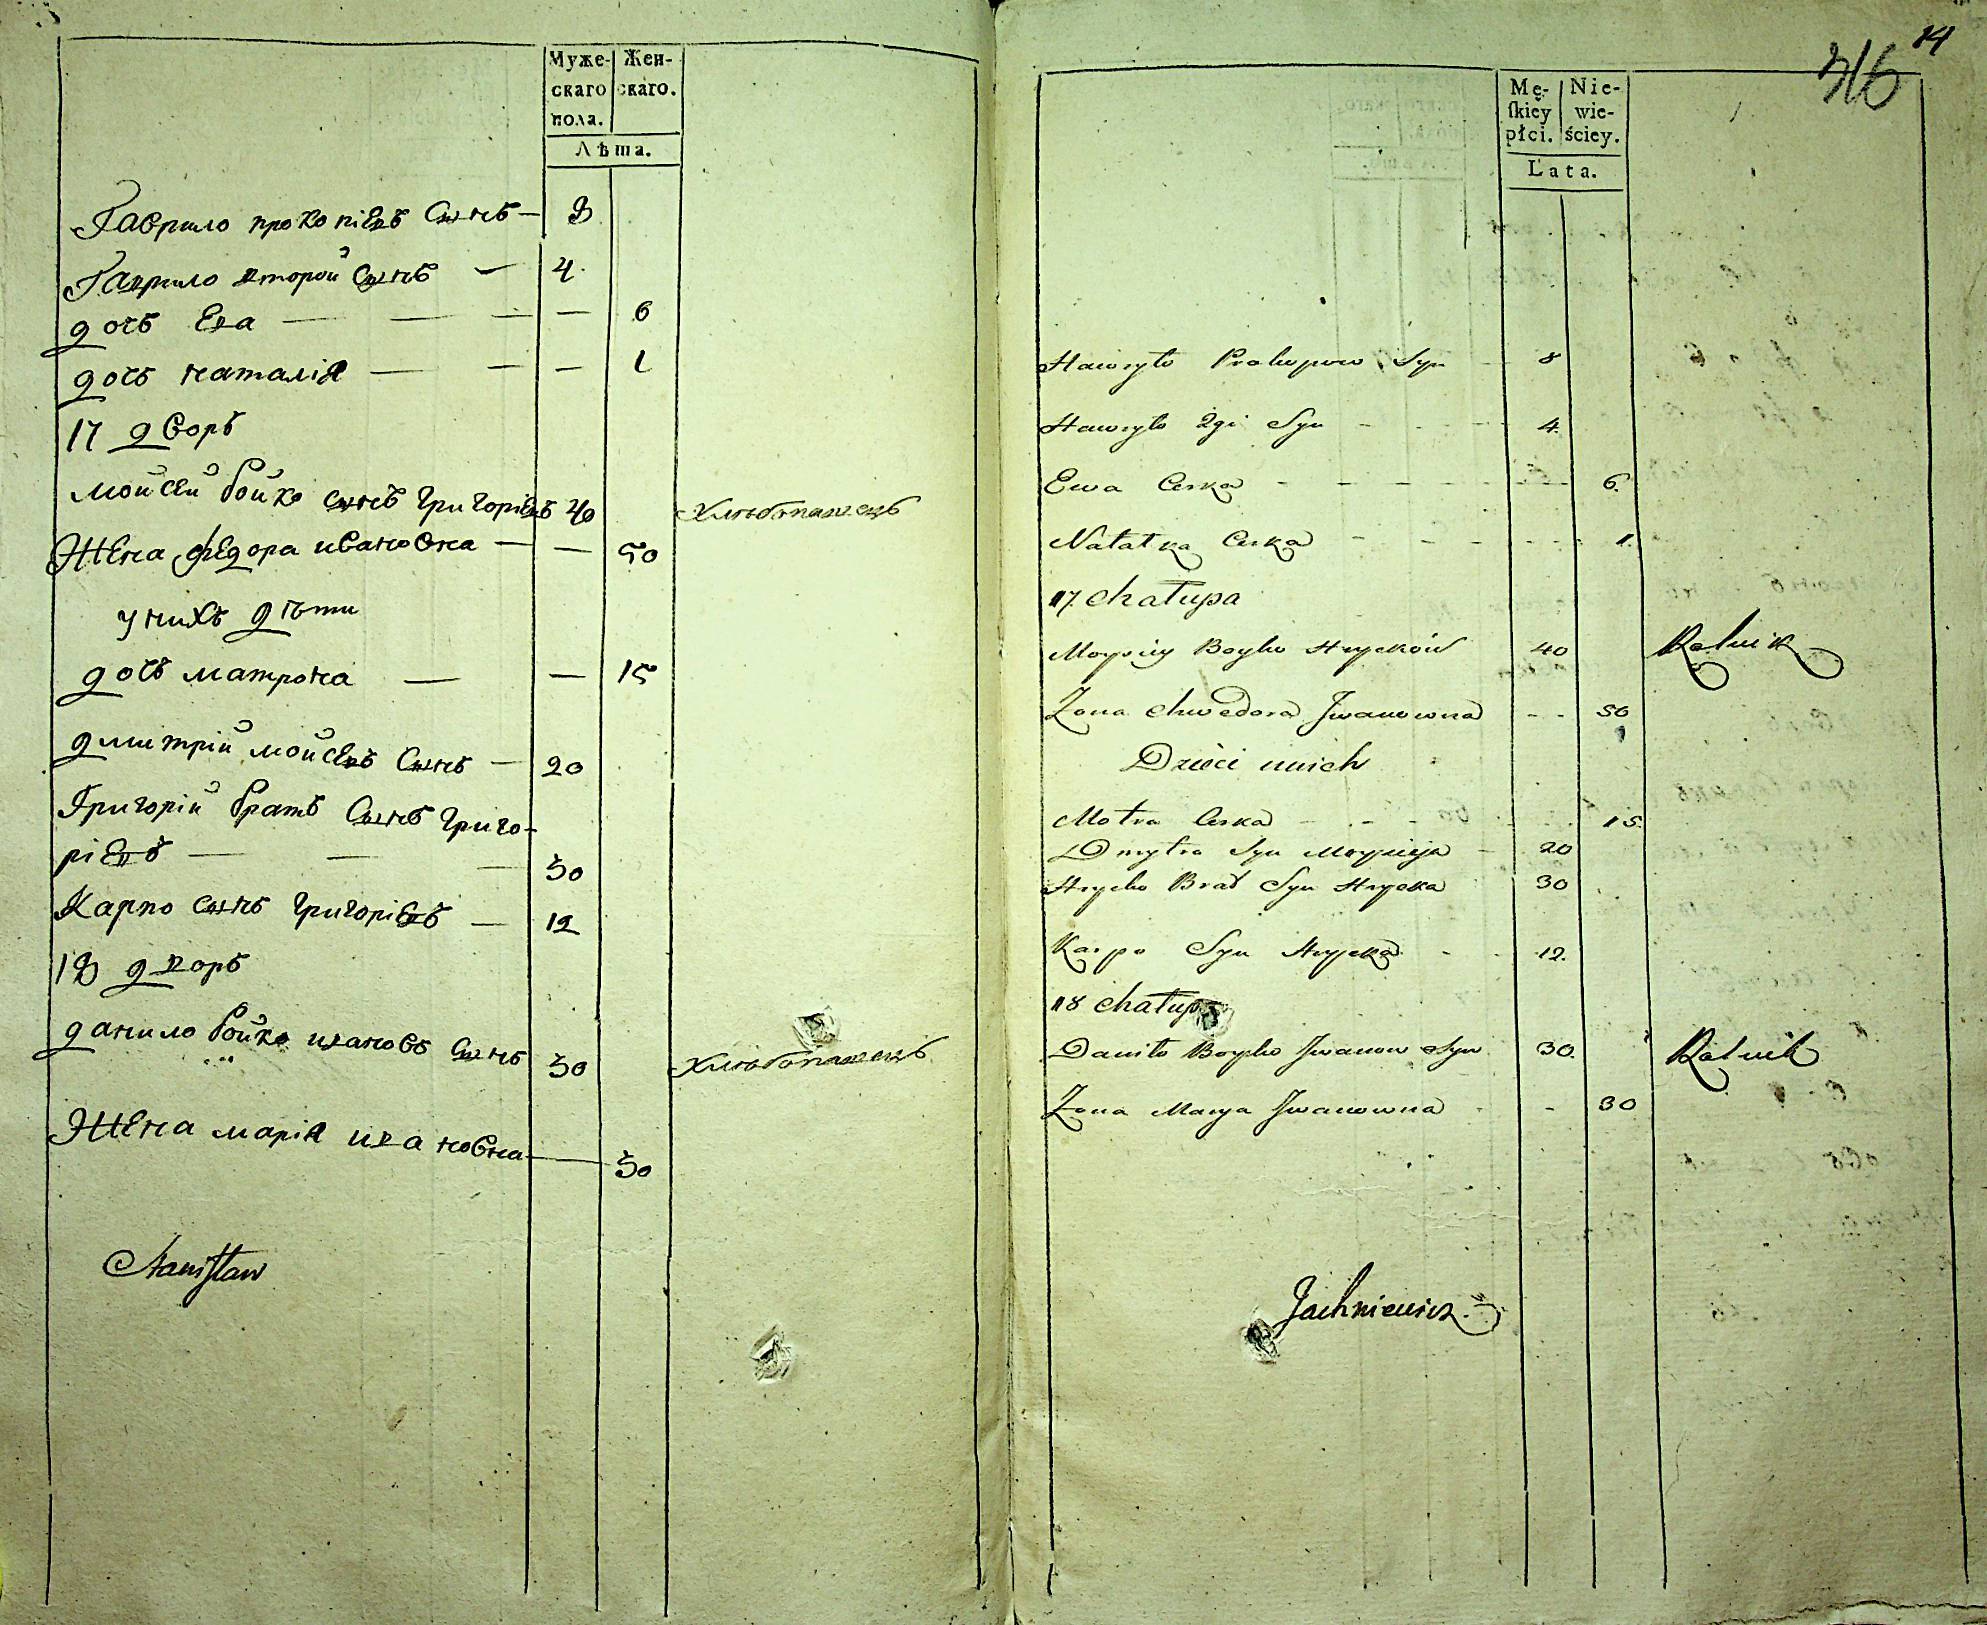 Муже- Жен-
скаго скаго.
пола.
Лѣта.
Гаврило прокопіевъ Сынъ — 8
Гаврило второй Сынъ — 4.
дочь Ева — — — — 6
дочь наталія — — — 1
17 дворъ
Мойсей бойко сынъ григоріевъ 40 Хлѣбопашецъ
Жена федора ивановна — — 50
у нихъ дѣти
дочь матрона — — 15
дмитрій мойсеевъ Сынъ — 20
Григорій братъ Сынъ григо-
ріевъ — — — 30
Карпо сынъ григоріевъ — 12
18 дворъ
данило бойко ивановъ Сынъ 30 Хлѣбопашецъ
Жена марія ивановна — 30
Stanisław
14
316
Mę- Nie-
skiey wie-
płci. ściey.
Lata.
Hawryło Prokopow Syn - 8
Hawryło 2gi Syn - - - - 4.
Ewa Corka - - - - - - 6.
Natałka Corka - - - - - 1.
17. Chałupa
Moysiey Boyko Hryćków 40 Rolnik
Zona Chwedora Jwanowna - - 50
Dzieci unich
Motra Corka - - - - 15.
Dmytro Syn Moysieja - 20
Hryćko Brat Syn Hryćka 30
Karpo Syn Hryćka - - 12.
18 Chałupa
Daniło Boyko Jwanow Syn 30. Rolnik
Zona Marya Jwanowna - - 30
Jachniewicz